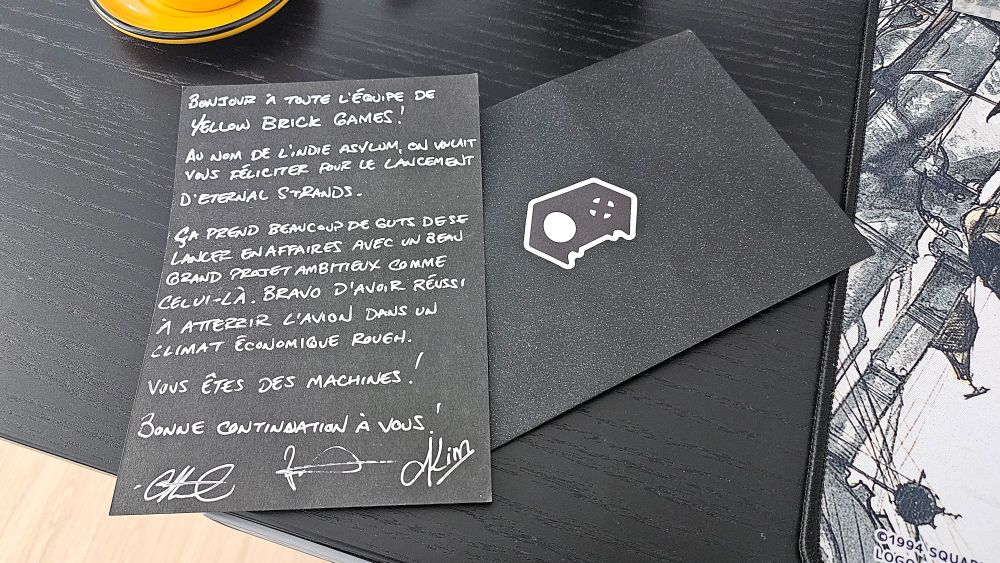 BONJOUR À TOUTE L'ÉQUIPE DE
YELLOW BRICK GAMES!
AU NOM DE L'INDIE ASYLUM, ON VOULAIT
VOUS FÉLICITER POUR LE LANCEMENT
D'ETERNAL STRANDS.
ÇA PREND BEAUCOUP DE GUTS DE SE
LANCER EN AFFAIRES AVEC UN BEAU
GRAND PROJET AMBITIEUX COMME
CELUI-LÀ. BRAVO D'AVOIR RÉUSSI
À ATTERRIR L'AVION DANS UN
CLIMAT ÉCONOMIQUE ROUGH.
VOUS ÊTES DES MACHINES!
BONNE CONTINUATION À VOUS!
Kim
©1994 SQUARE
LOGO